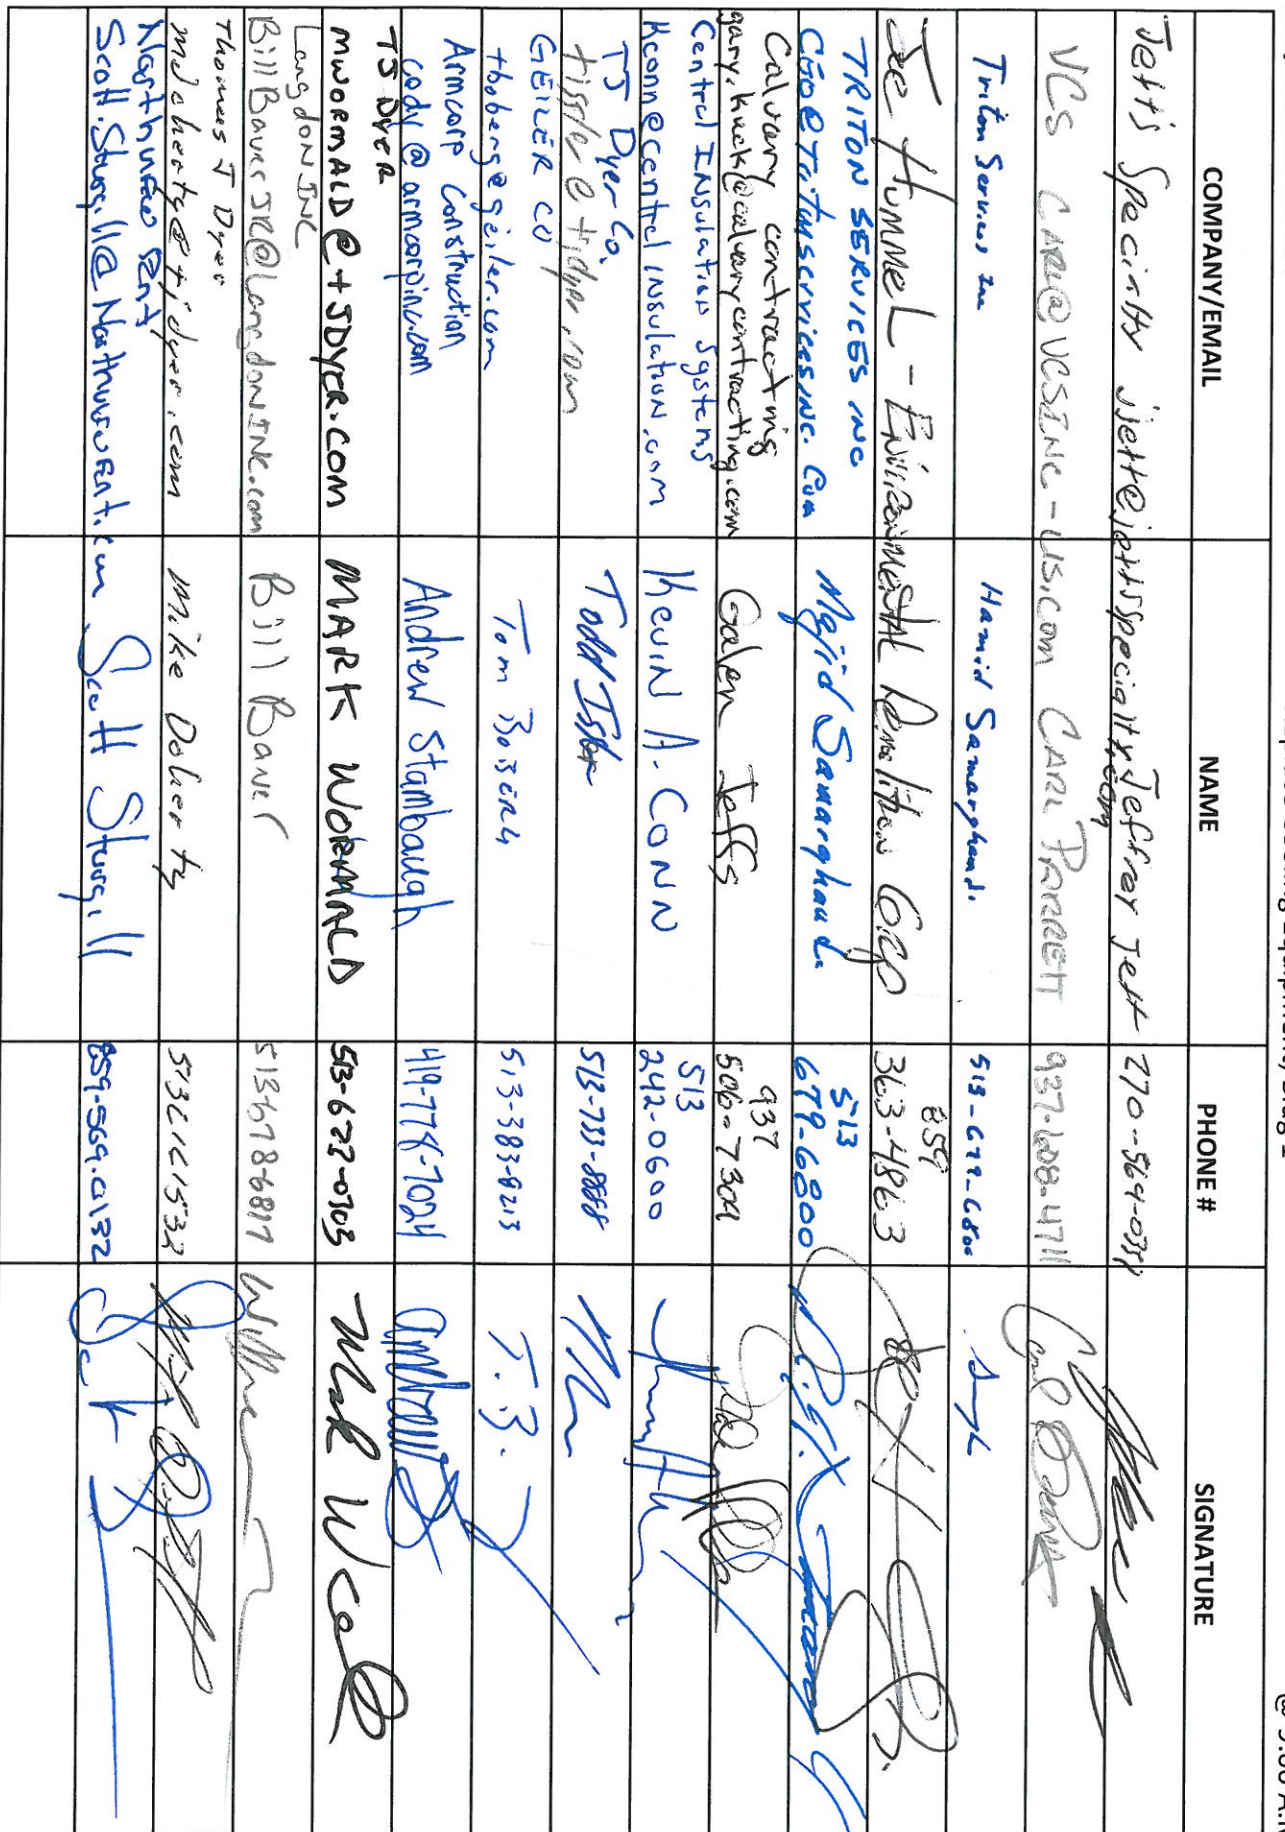 COMPANY/EMAIL NAME PHONE # SIGNATURE
Jett's Specialty jjett@jettsspecialty.com Jeffrey Jett 270-564-0358
VCS CARL@VCSINC-US.COM CARL PARRETT 937-608-4711
Triton Services Inc Hamid Samarghandi 513-679-6800
Joe Hummel - Environmental Demolition Group 859
363-4863
TRITON SERVICES INC
CGO@Tritonservicesinc.com Majid Samarghandi 513
679-6800
Calvary contracting
gary.kuck@calvarycontracting.com Galen Jeffs 937
506-7309
Central Insulation Systems
Kconn@centralinsulation.com Kevin A. Conn 513
242-0600
TJ Dyer Co.
tissler@tjdyer.com Todd Issler 513-733-8888
GEILER CO
tboberg@geiler.com Tom Boberg 513-383-8213
Armcorp Construction
cody@armcorpinc.com Andrew Stambaugh 419-778-7024
TJ Dyer
MWORMALD@TJDYER.COM MARK WORMALD 513-623-0303
Langdon INC
BillBauerJR@LangdonINC.com Bill Bauer 513-678-6817
Thomas J Dyer
mdoherty@tjdyer.com Mike Doherty 513
Northwind Ent
Scott.Sturgill@Northwindent.com Scott Sturgill 859-569-0132